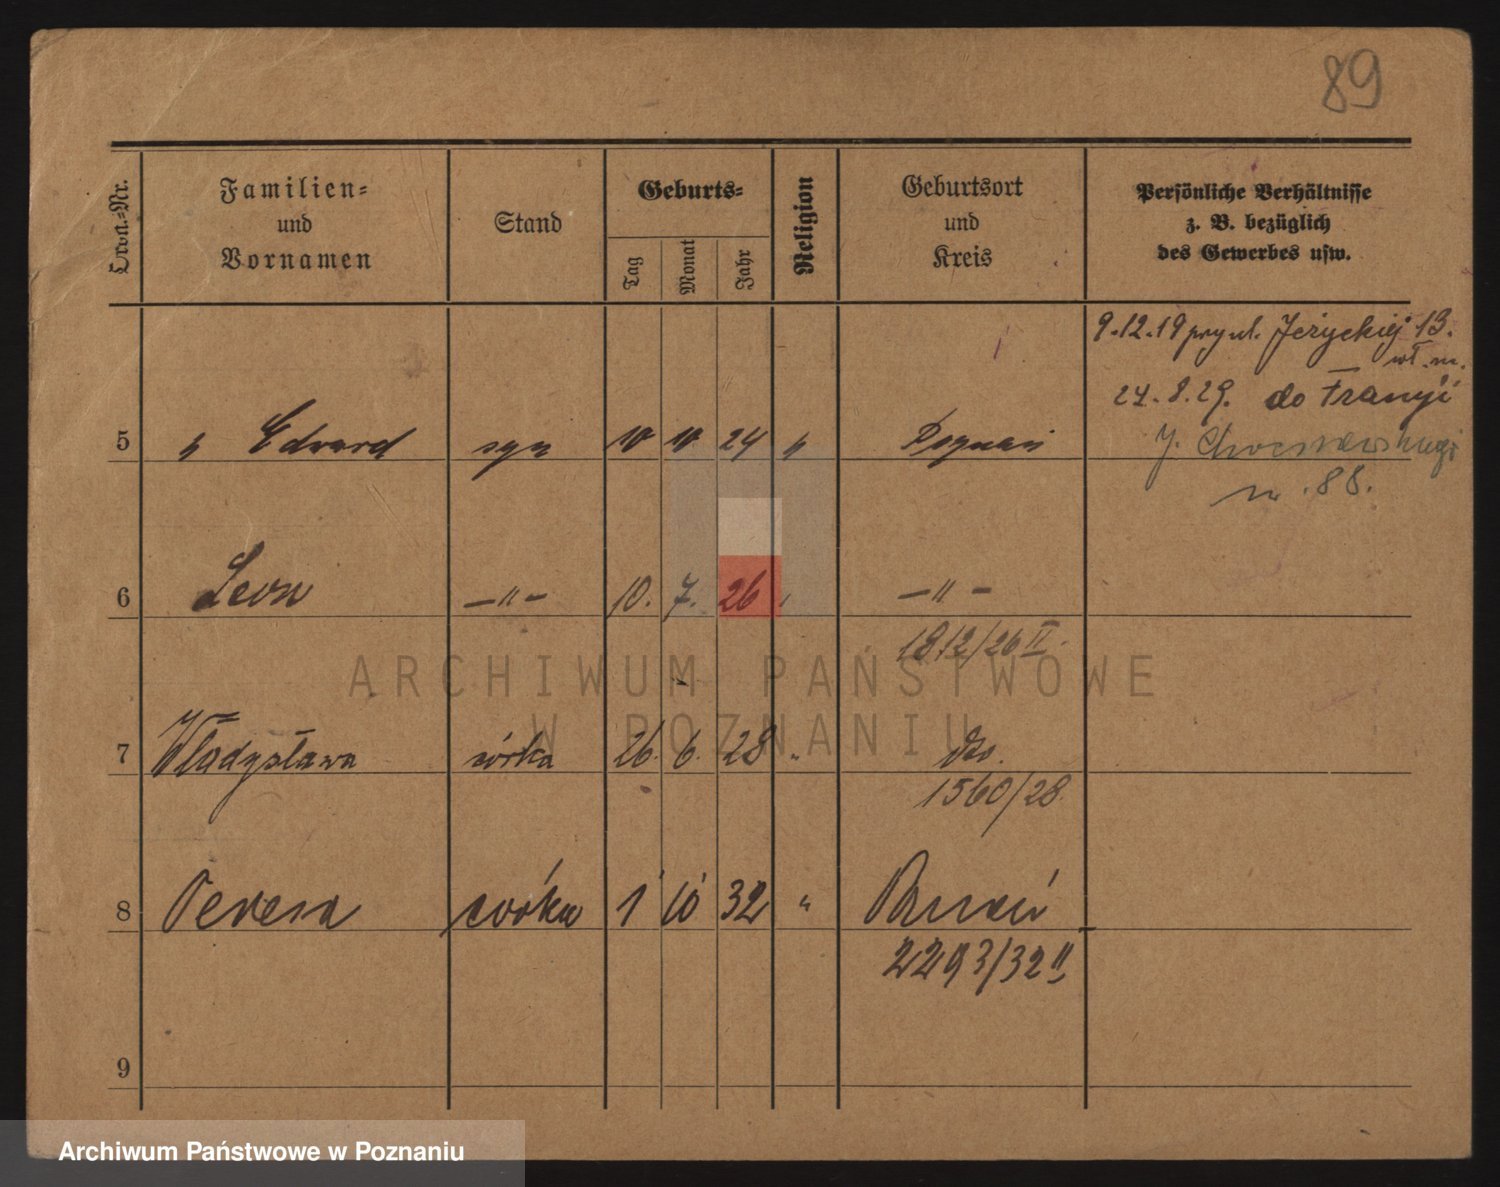 89
Lfda.-Nr.
Familien-
und
Vornamen
Stand
Geburts-
Tag
Monat
Jahr
Religion
Geburtsort
und
Kreis
Persönliche Verhältnisse
z. B. bezüglich
des Gewerbes usw.
9.12.19 Jeżyckiej 13.
wł. m.
24.8.29. do Francji
5 " Edward syn 10 10 24 " Poznań
nr. 88.
6 Leon —"— 10. 7. 26 —"—
1812/26 II
ARCHIWUM PAŃSTWOWE
W POZNANIU
7 Władysława córka 26. 6. 28 " dto.
1560/28.
8 Teresa córka 1 10 32 " Poznań
2293/32 II
9
Archiwum Państwowe w Poznaniu